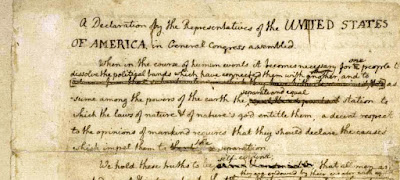 A Declaration by the Representatives of the UNITED STATES
OF AMERICA, in General Congress assembled.
When in the course of human events it becomes necessary for one people to
dissolve the political bands which have connected them with another, and to
as-
separate and equal
sume among the powers of the earth the station to
which the laws of nature & of nature's god entitle them, a decent respect
to the opinions of mankind requires that they should declare the causes
which impel them to the separation.
self-evident
We hold these truths to be that all men are